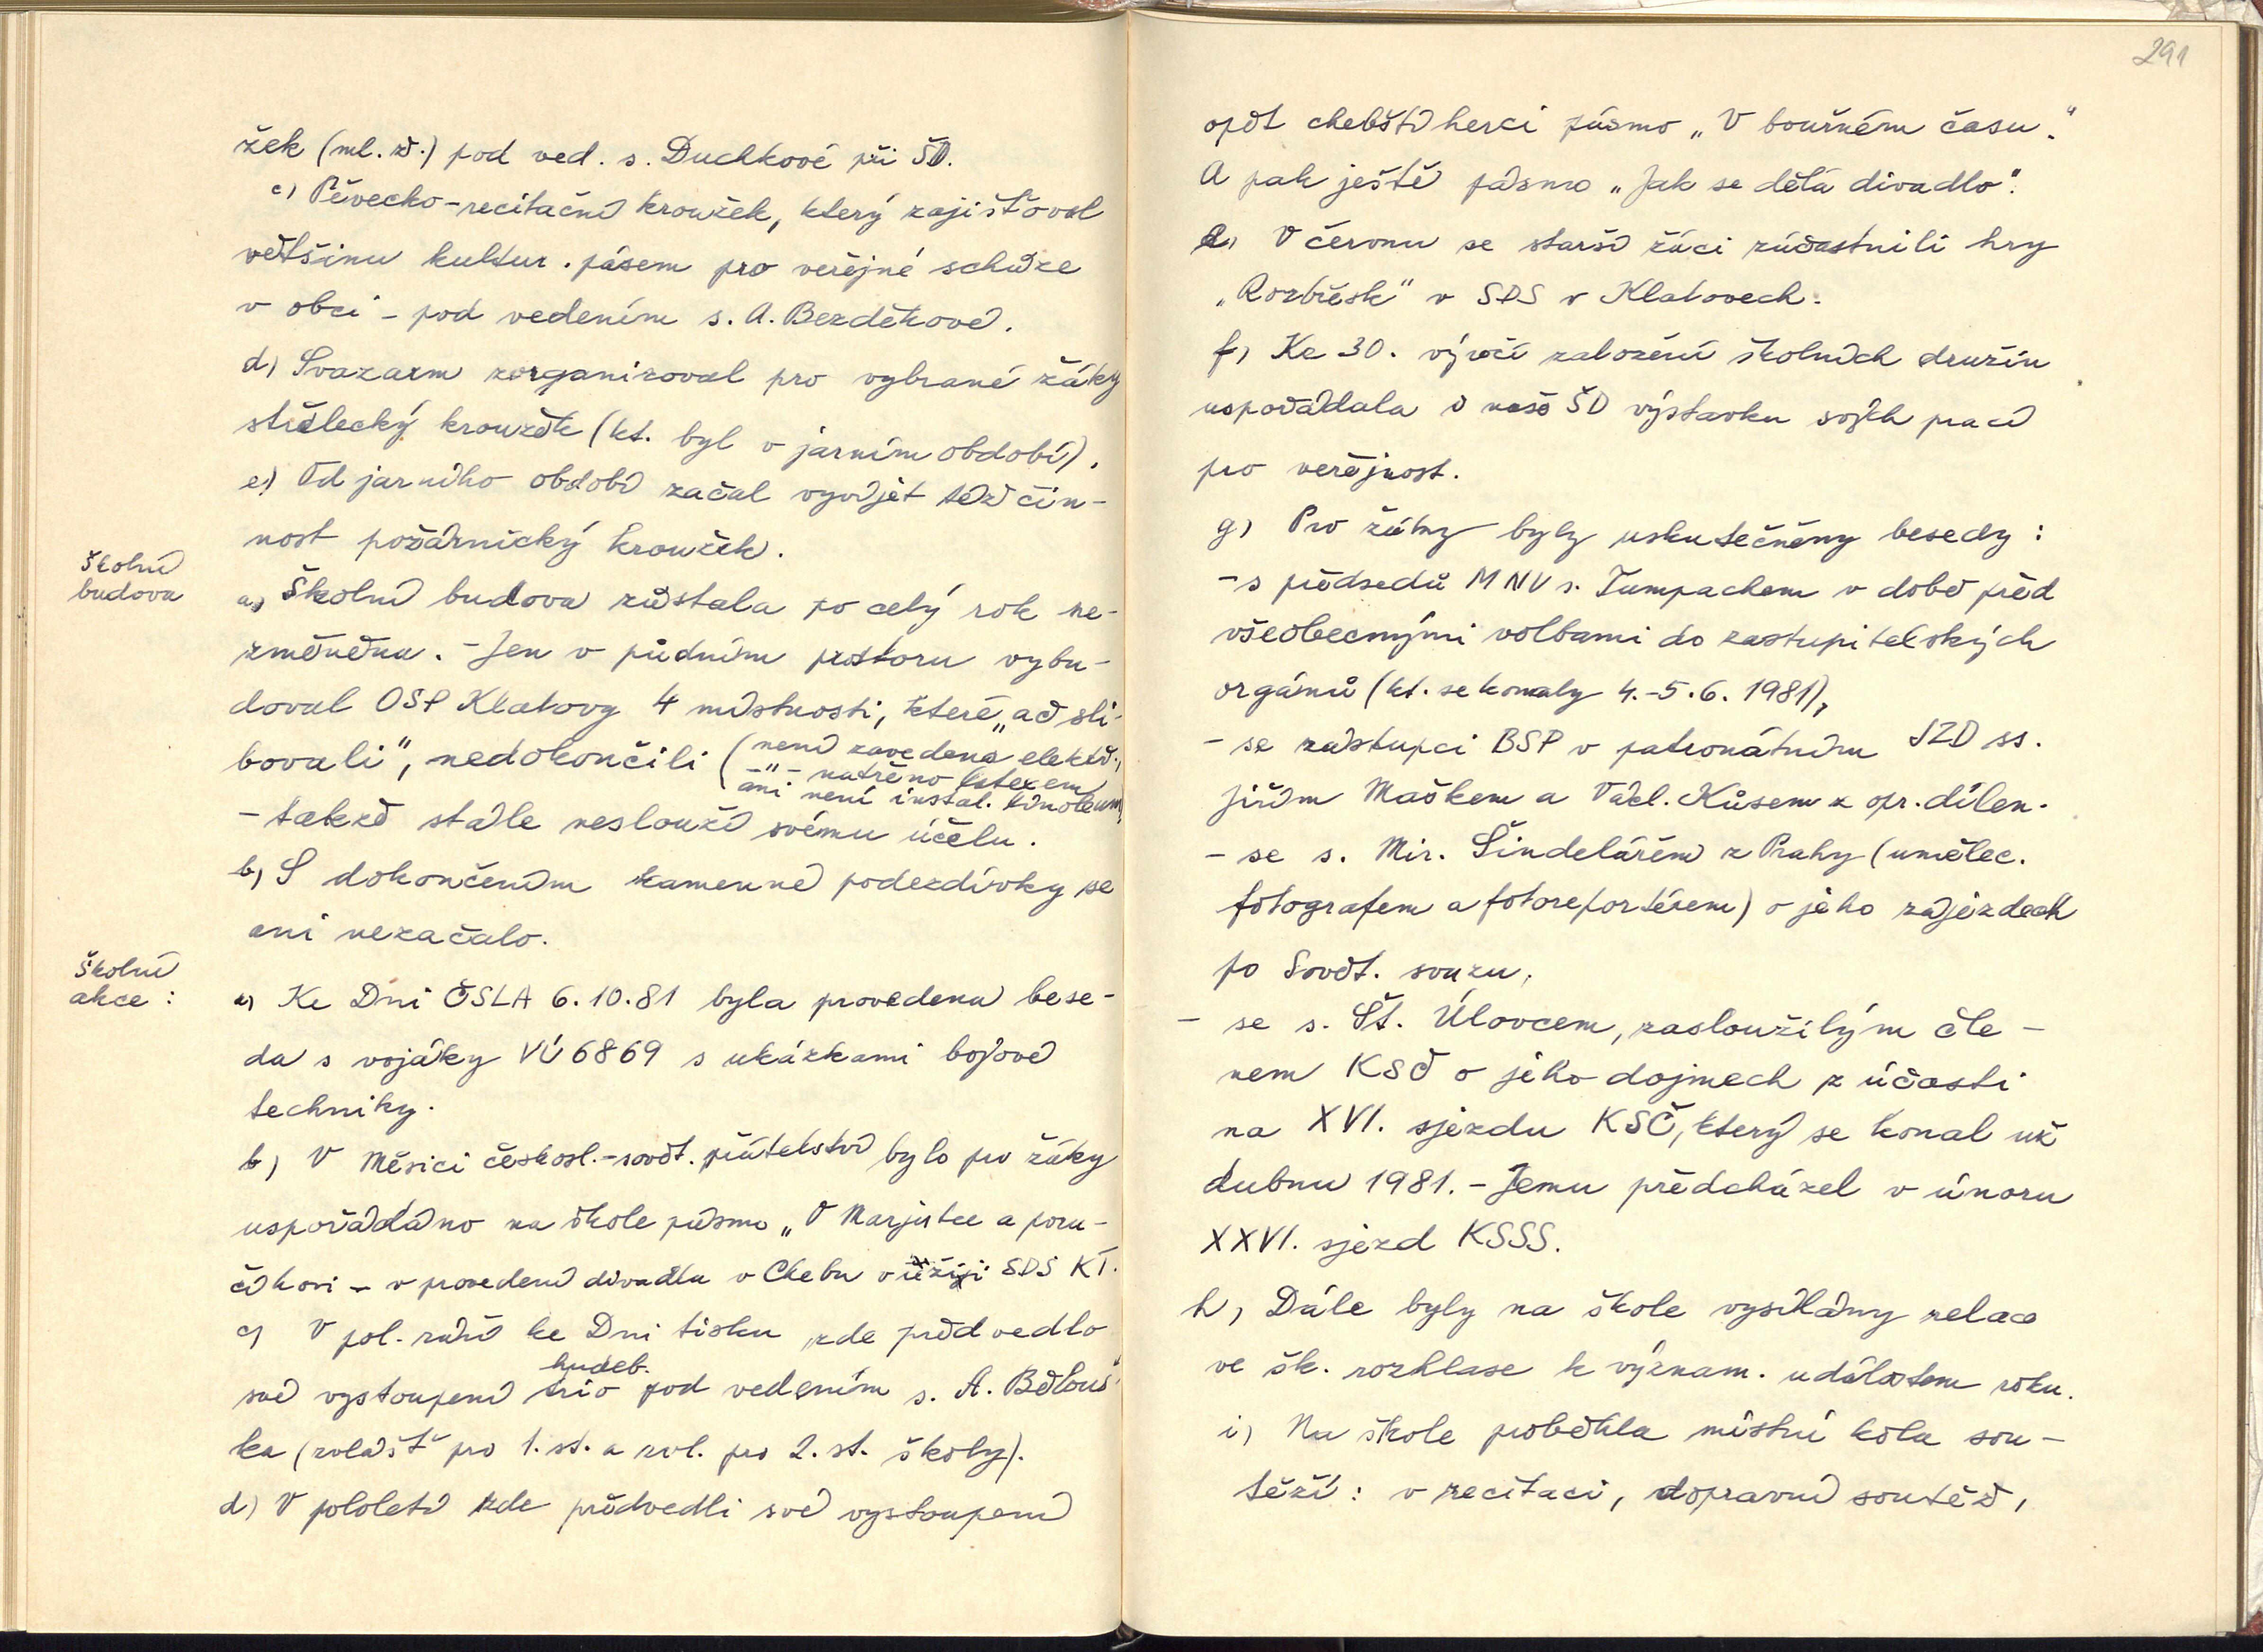 žek (ml. ž.) pod ved. s. Duchkové při ŠD.
c) Pěvecko-recitační kroužek, který zajišťoval
většinu kultur. pásem pro veřejné schůze
v obci – pod vedením s. A. Bezděkové.
d) Svazarm zorganizoval pro vybrané žáky
střelecký kroužek (kt. byl v jarním období).
e) Od jarního období začal vyvíjet též čin-
nost požárnický kroužek.
Školní
budova
a) Školní budova zůstala po celý rok ne-
změněna. – Jen v půdním prostoru vybu-
doval OSP Klatovy 4 místnosti, které, „ač sli-
bovali", nedokončili (není zavedena elektř.,
–"– natřeno latexem,
ani není instal. linoleum)
– takže stále neslouží svému účelu.
b) S dokončením kamenné podezdívky se
ani nezačalo.
Školní
akce :
a) Ke Dni ČSLA 6.10.81 byla provedena bese-
da s vojáky VÚ 6869 s ukázkami bojové
techniky.
b) V Měsíci českosl.-sovět. přátelství bylo pro žáky
uspořádáno na škole pásmo „O Marjutce a poru-
číkovi – v provedení divadla v Chebu v režiji SDS KT.
c) V pol. září ke Dni tisku zde předvedlo
hudeb.
své vystoupení trio pod vedením s. A. Bělouš-
ka (zvlášť pro 1. st. a zvl. pro 2. st. školy).
d) V pololetí zde předvedli své vystoupení
291
opět chebští herci pásmo „V bouřném času."
A pak ještě pásmo „Jak se dělá divadlo".
e) V červnu se starší žáci zúčastnili hry
„Rozbřesk" v SDS v Klatovech.
f) Ke 30. výročí založení školních družin
uspořádala i naše ŠD výstavku svých prací
pro veřejnost.
g) Pro žáky byly uskutečněny besedy :
– s předsedů MNV s. Tumpachem v době před
všeobecnými volbami do zastupitelských
orgánů (kt. se konaly 4.-5.6. 1981),
– se zástupci BSP v patronátním JZD ss.
Jiřím Maškem a Václ. Kůsem z opr. dílen.
– se s. Mir. Šindelářem z Prahy (umělec.
fotografem a fotoreportérem) o jeho zájezdech
po Sovět. svazu,
– se s. Št. Úlovcem, zasloužilým čle-
nem KSČ o jeho dojmech z účasti
na XVI. sjezdu KSČ, který se konal už
dubnu 1981. – Jemu předcházel v únoru
XXVI. sjezd KSSS.
h) Dále byly na škole vysílány relace
ve šk. rozhlase k význam. událostem roku.
i) Na škole proběhla místní kola sou-
těží : v recitaci, dopravní soutěž,